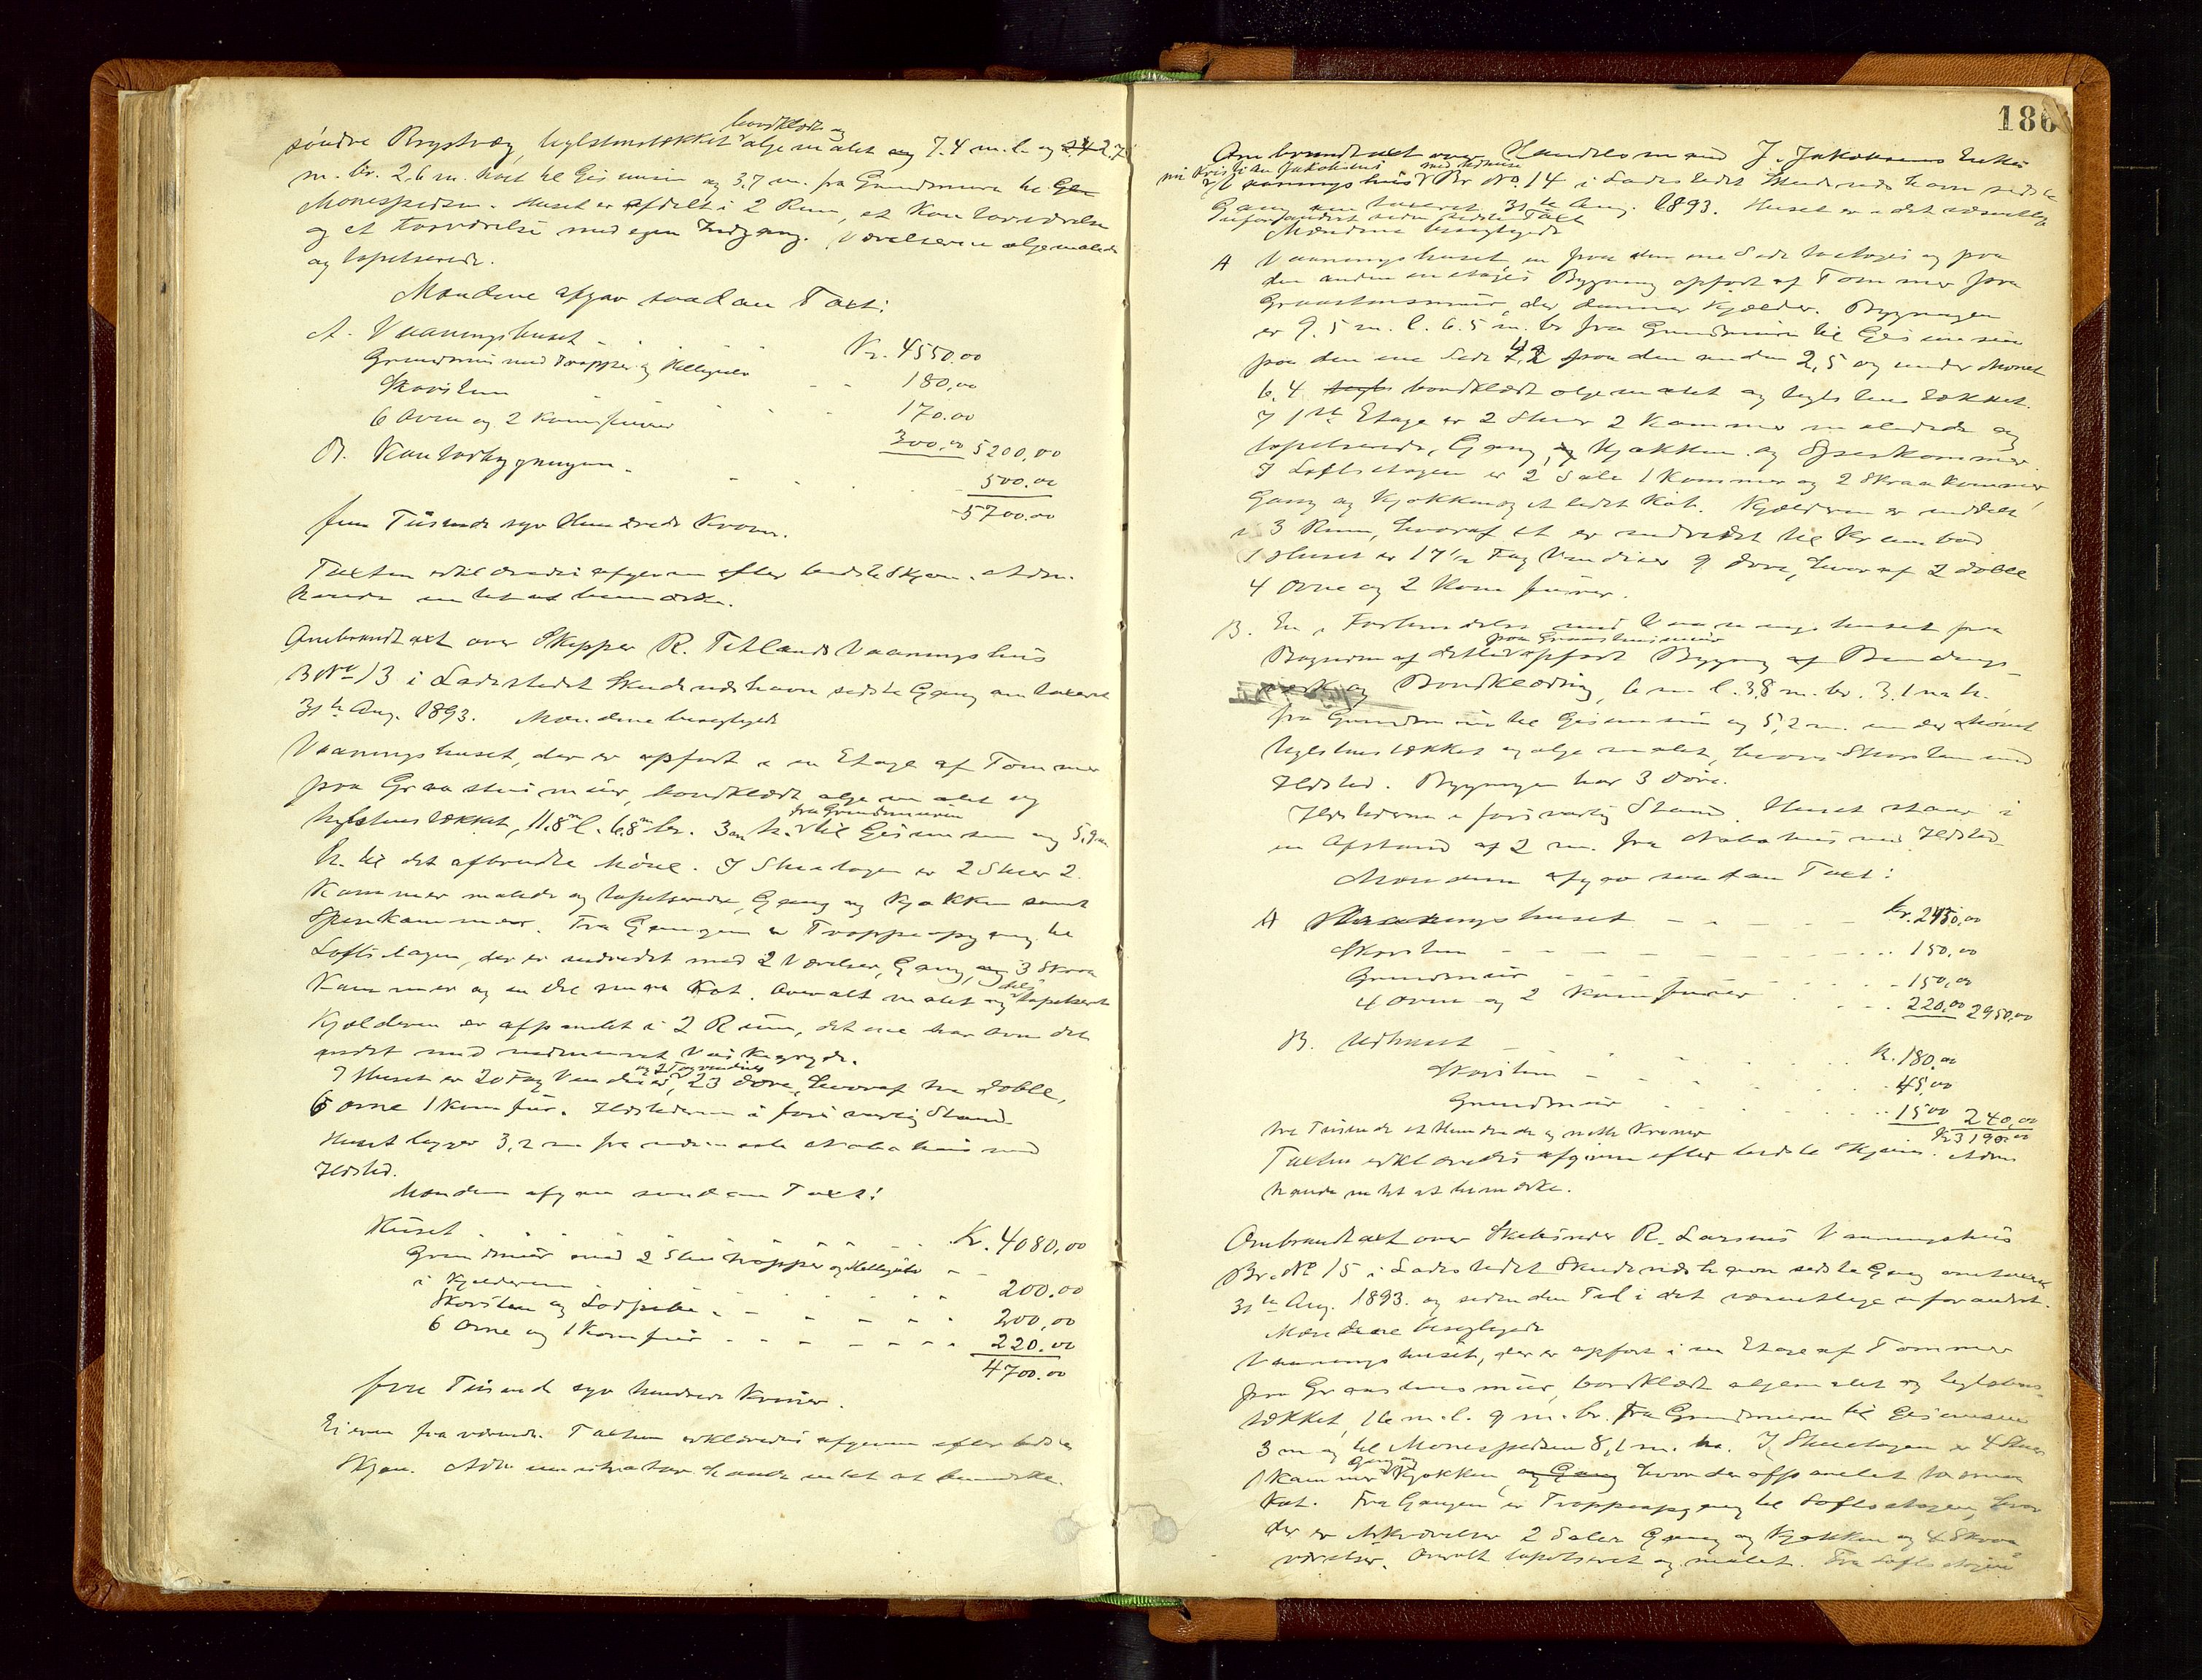 søndre Brystvæg, teglstenstækket bordklædt og oljemalet og 7.4 m. l. og 2.7
m. br. 2,6 m. høit til Gesimsen og 3,7 m. fra Grundmuren til
Mønespidsen. Huset er afdelt i 2 Rum, et Kontorværelse
og et Forværelse med egen Indgang. Værelserne oljemalede
og tapetserede.
Mændene afgav saadan Taxt:
A. Vaaningshuset Kr. 4550.00
Grundmur med Trapper og Hellegulv 180,00
Skorsten 170.00
6 Ovne og 2 Komfurer 300,00 5200,00
B. Kontorbygningen 500.00
5700.00
fem Tusinde syv Hundrede Kroner.
Taxten erklæredes afgiven efter bedste Skjøn. Adm.
havde intet at bemærke.
Ombrandtaxt over Skipper R. Tetlands Vaaningshus
B No 13 i Ladestedet Skudesneshavn sidste Gang omtaxeret
31te Aug. 1893. Mændene besigtigede
Vaaningshuset, der er opført i en Etage af Tømmer
paa Graastensmur, bordklædt oljemalet og
teglstenstækket, 11.8 m l. 6,8 m br. 3 m h. fra Grundmuren til Gesimsen og 5,9 m
h. til det afbrudte Møne. I Stueetagen er 2 Stuer 2
Kammer malede og tapetserede, Gang og Kjøkken samt
Spiskammer. Fra Gangen er Trappeopgang til
Loftsetagen, der er indredet med 2 Værelser, Gang, og 3 Skraa
Kammer og en Del smaa Kot. Overalt malet og dels tapetseret
Kjælderen er afpanelet i 2 Rum, det ene har Ovn det
andet med indmuret Vaskegryde.
I Huset er 20 Fag Vinduer, 23 Døre, hvoraf tre doble,
6 Ovne 1 Komfur. Ildstederne i forsvarlig Stand
Huset ligger 3,2 m fra nærmeste Nabohus med
Ildsted.
Mændene afgav saadan Taxt:
Huset Kr. 4080,00
Grundmur med 2 Stentrapper og Hellegulv
i Kjælderen 200.00
Skorsten og Lodpibe 200,00
6 Ovne og 1 Komfur 220.00
4700.00
fire Tusinde syv hundrede Kroner.
Eieren fraværende. Taxten erklæredes afgiven efter bedste
Skjøn. Administrator havde intet at bemærke.
186
Ombrandtaxt over Handelsmand J. Jakobsens Enkes
nu Kristian Jakobsens
Vaaningshus med Udhuse Br No. 14 i Ladestedet Skudesneshavn sidste
Gang omtaxeret 31te Aug. 1893. Huset er i det væsentlige
uforandret siden sidste Taxt
Mændene besigtigede
A Vaaningshuset en paa den ene Side toetages og paa
den anden enetages Bygning opført af Tømmer paa
Graastensmur, der danner Kjælder. Bygningen
er 9.5 m. l. 6.5 m. br fra Grundmuren til Gesimsen
paa den ene Side 4,2 paa den anden 2,5 og under Mønet
6.4 bordklædt oljemalet og teglstenstækket.
I 1ste Etage er 2 Stuer 2 Kammer malede og
tapetserede, Gang, Kjøkken og Spiskammer.
I Loftsetagen er 2 Sale 1 Kammer og 2 Skraakammer,
Gang og Kjøkken og et lidet Kot. Kjælderen er inddelt
i 3 Rum, hvoraf et er indredet til Krambod
I Huset er 17 1/2 Fag Vinduer 9 Døre, hvoraf 2 doble
4 Ovne og 2 Komfurer.
B. En i Forbindelse med Vaaningshuset paa
Bagsiden af dette paa Graastensmur opført Bygning af Bindings
verk og Bordklædning, 6 m l. 3,8 m. br. 3,1 m h.
fra Grundmuren til Gesimsen og 5,2 m. under Mønet
teglstenstækket og oljemalet, hvori Skorsten med
Ildsted. Bygningen har 3 Døre.
Ildstederne i forsvarlig Stand. Huset staar i
en Afstand af 2 m. fra Nabohus med Ildsted
Mændene afgav saadan Taxt:
A Vaaningshuset Kr. 2430,00
Skorsten 150,00
Grundmur 150,00
4 Ovne og 2 Komfurer 220,00 2950,00
B. Udhuset Kr. 180.00
Skorsten 45,00
Grundmur 15 00 240,00
tre Tusinde et Hundrede og nitti Kroner Kr 3190.00
Taxten erklæredes afgiven efter bedste Skjøn. Adm
havde intet at bemærke.
Ombrandtaxt over Skibsreder R. Larsens Vaaningshus
Br. No 15 i Ladestedet Skudesneshavn sidste Gang omtaxeret
31te Aug. 1893. og siden den Tid i det væsentlige uforandret.
Mændene besigtigede
Vaaningshuset, der er opført i en Etage af Tømmer
paa Graastensmur, bordklædt oljemalet og teglstens-
tækket, 16 m. l. 9 m. br. Fra Grundmuren til Gesimsen
3 m og til Mønespidsen 8,1 m. h. I Stueetagen er 4 Stuer
1 Kammer Gang og Kjøkken, og Gang hvor der afpanelet to smaa
Kot. Fra Gangen er Trappeopgang til Loftsetagen, hvor
der er 2 Sale Gang og Kjøkken og 4 Skraa
værelser. Overalt tapetseret og malet. Fra Loftsetagen